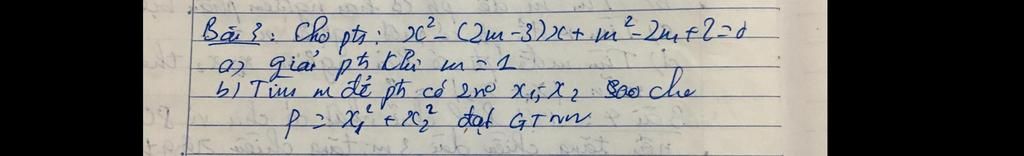 Bài 3: Cho pt: x² - (2m-3)x + m² - 2m + 2 = 0
a) giải pt khi m = 1
b) Tìm m để pt có 2 no x₁; x₂ sao cho
P = x₁² + x₂² đạt GTNN